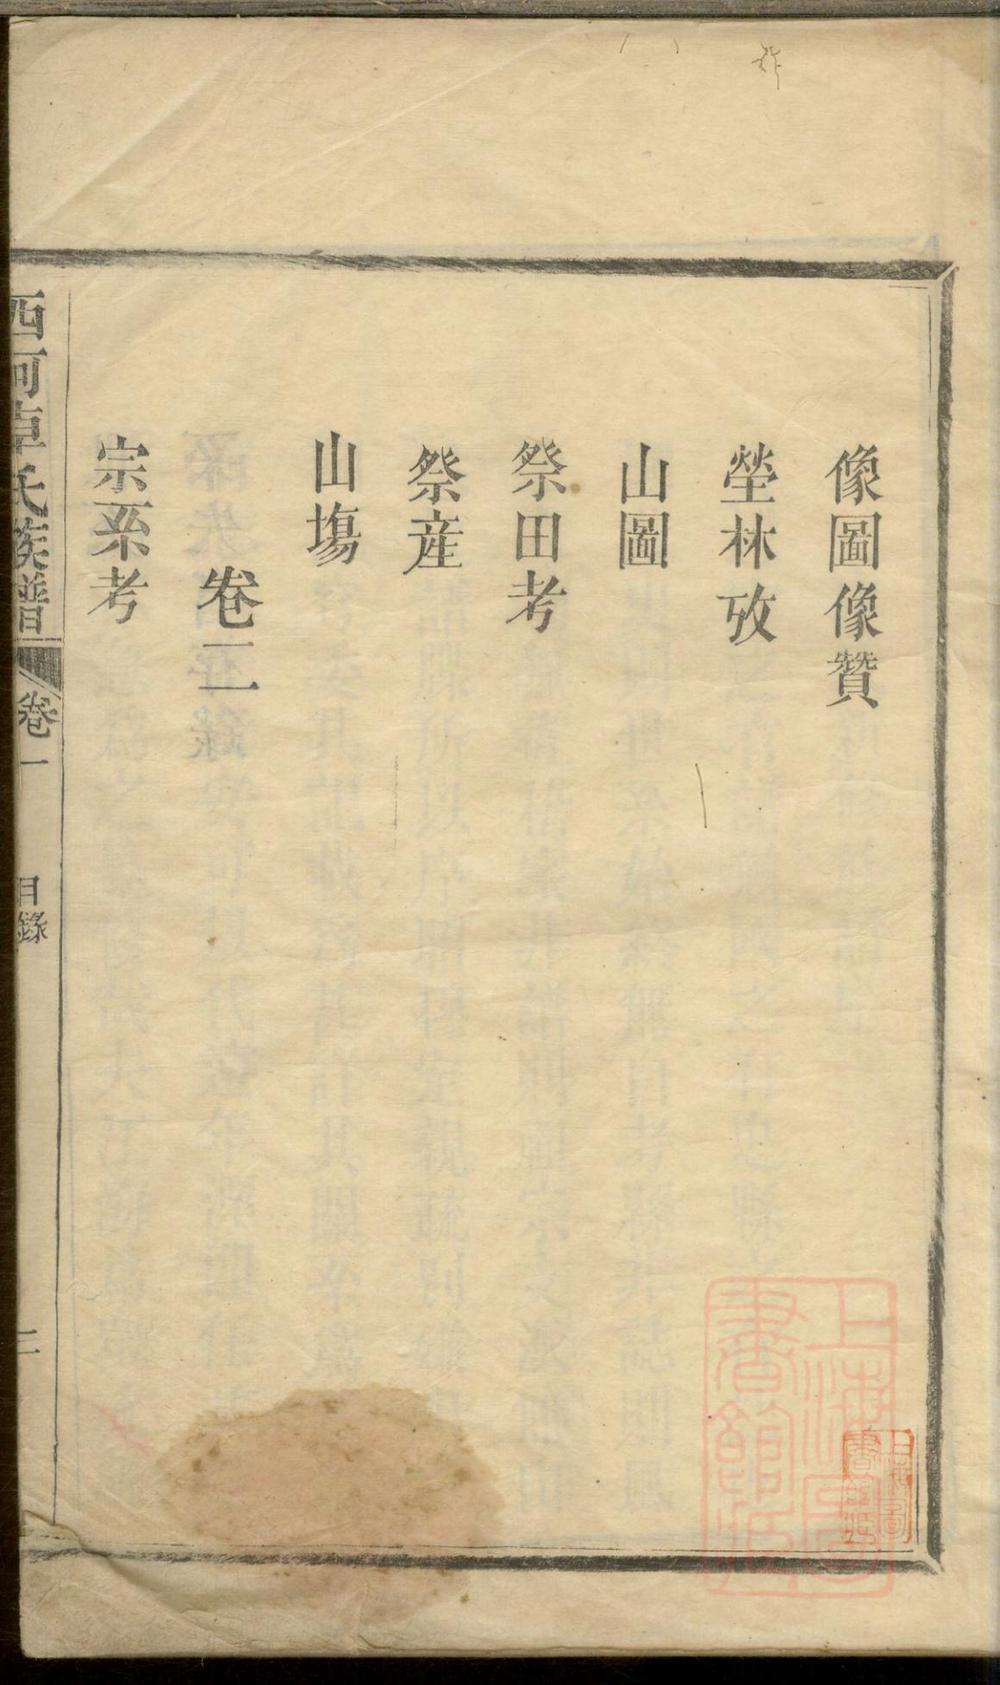 像圖像贊
塋林攷
山圖
祭田考
祭產
山塲
卷二
宗系考
西河卓氏族譜
卷一
目錄
二
上海圖書館藏